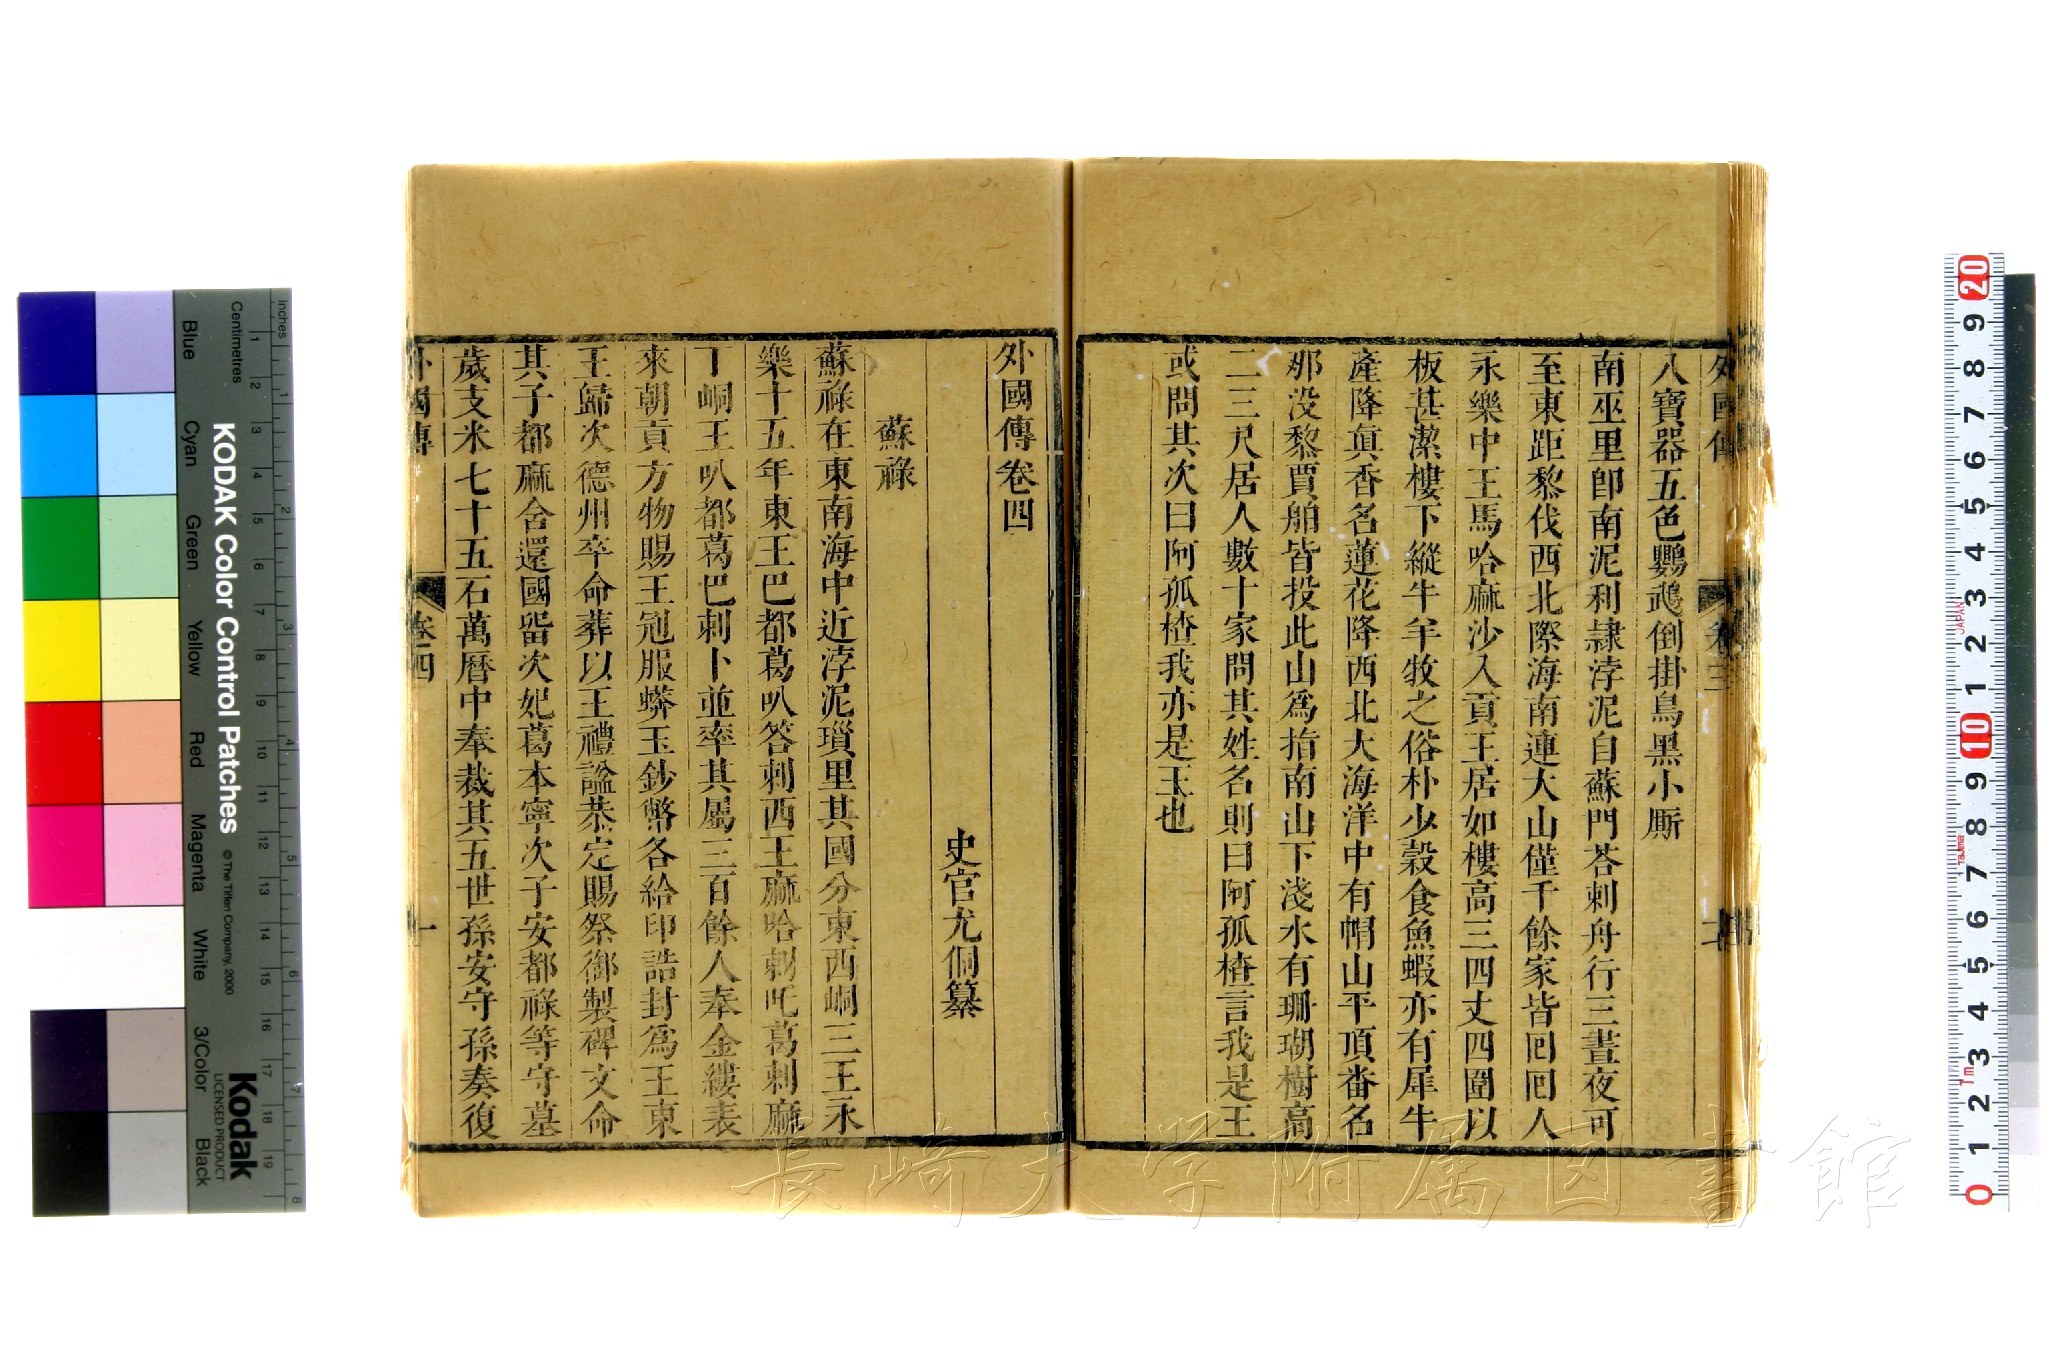 外國傳
卷三
八寶器五色鸚鵡倒掛鳥黑小厮
南巫里卽南泥利隷浡泥自蘇門荅剌舟行三晝夜可
至東距黎伐西北際海南連大山僅千餘家皆囘囘人
永樂中王馬哈麻沙入貢王居如樓高三四丈四圍以
板甚潔樓下縱牛羊牧之俗朴少穀食魚蝦亦有犀牛
產降眞香名蓮花降西北大海洋中有帽山平頂畨名
那没黎賈舶皆投此山爲指南山下淺水有珊瑚樹高
二三尺居人數十家問其姓名則曰阿孤楂言我是王
或問其次曰阿孤楂我亦是王也
外國傳卷四
史官尤侗纂
蘇祿
蘇祿在東南海中近浡泥瑣里其國分東西峒三王永
樂十五年東王巴都葛叭答剌西王麻哈剌吒葛剌麻
丁峒王叭都葛巴剌卜並率其屬三百餘人奉金縷表
來朝貢方物賜王冠服蟒玉鈔幣各給印誥封爲王東
王歸次德州卒命葬以王禮諡恭定賜祭御製碑文命
其子都麻含還國畱次妃葛本寧次子安都祿等守墓
歲支米七十五石萬曆中奉裁其五世孫安守孫奏復
外國傳
卷四
一
長崎大学附属図書館
KODAK Color Control Patches
© The Tiffen Company, 2000
Kodak
LICENSED PRODUCT
Inches
Centimetres
Blue
Cyan
Green
Yellow
Red
Magenta
White
3/Color
Black
1 2 3 4 5 6 7 8 9 10 11 12 13 14 15 16 17 18 19
1 2 3 4 5 6 7 8
20 9 8 7 6 5 4 3 2 1 10 9 8 7 6 5 4 3 2 1 0
JAPAN
Tajima